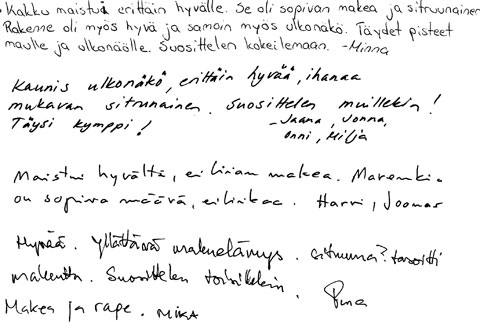 Kakku maistui erittäin hyvälle. Se oli sopivan makea ja sitruunainen
Rakenne oli myös hyvä ja samoin myös ulkonäkö. Täydet pisteet
maulle ja ulkonäölle. Suosittelen kokeilemaan. -Minna
Kaunis ulkonäkö, erittäin hyvää, ihanaa
mukavan sitrunainen. Suosittelen muillekin!
Täysi kymppi! -Jaana, Jonna,
Onni, Milja
Maistui hyvältä, ei liian makea. Marenkia
on sopiva määrä, ei liikaa. Harri, Joonas
Hyvää. Yllättävä makuelämys. Sitruuna?
makeutta. Suosittelen toisillekin.
Makea ja rape. MIKA